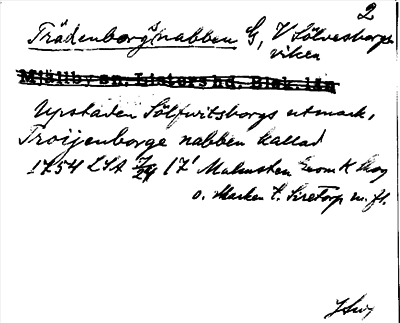 2
Trädenborg(s)nabben G, V Sölvesborgs-
viken
Mjällby sn, Listers hd, Blek. län
Upstaden Sölfwitsborgs utmark,
Troijenborge nabben kallad
1754 LSA 17' Malmsten Geom K Skog
o. Marken t. Siretorp m. fl.